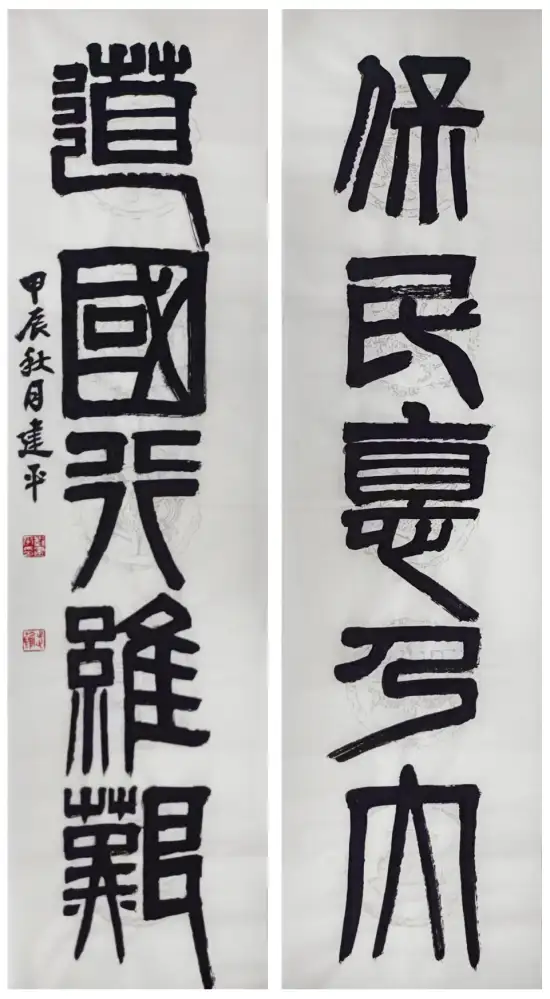 保民惪乃大
道國行雖艱
甲辰秋月建平